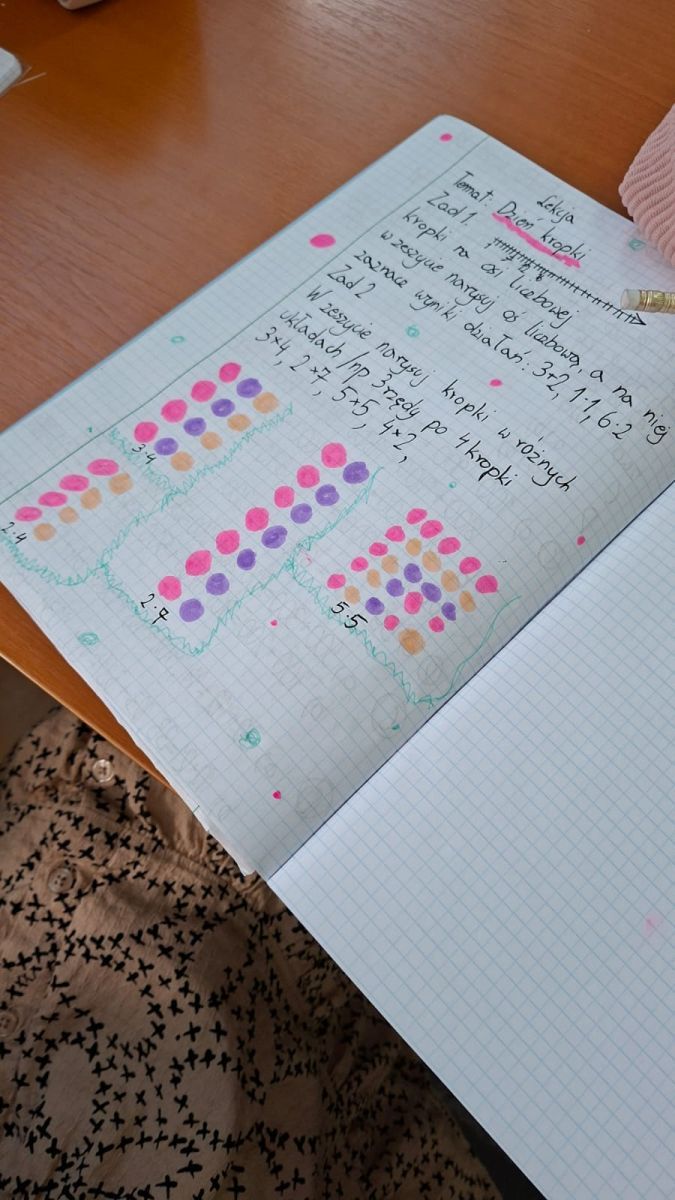 Lekcja
Temat: Dzień kropki
Zad 1.
kropki na osi liczbowej
w zeszycie narysuj oś liczbową, a na niej
zaznacz wyniki działań: 3+2, 1·1, 6:2
Zad 2
W zeszycie narysuj kropki w różnych
układach /np 3 rzędy po 4 kropki
3×4, 2×7, 5×5, 4×2,
3·4
2·4
2·7
5·5